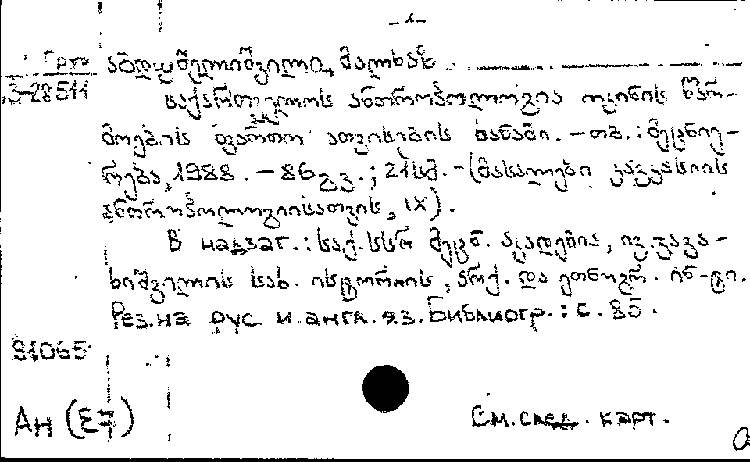 -1-
Груз აბდუშელიშვილი, მალხაზ
3-28511 საქართველოს ანთროპოლოგია რკინის წარ-
მოების ფართო ათვისების ხანაში. - თბ. : მეცნიე-
რება, 1988. - 86 გვ. ; 21 სმ. - (მასალები კავკასიის
ანთროპოლოგიისათვის, IX).
В надзаг. : საქ. სსრ მეცნ. აკადემია, ივ. ჯავა-
ხიშვილის სახ. ისტორიის, არქ. და ეთნოგრ. ინ-ტი.
Рез. на рус. и англ. яз. Библиогр. : с. 85.
81065
Ан (Е7)
См. след. карт.